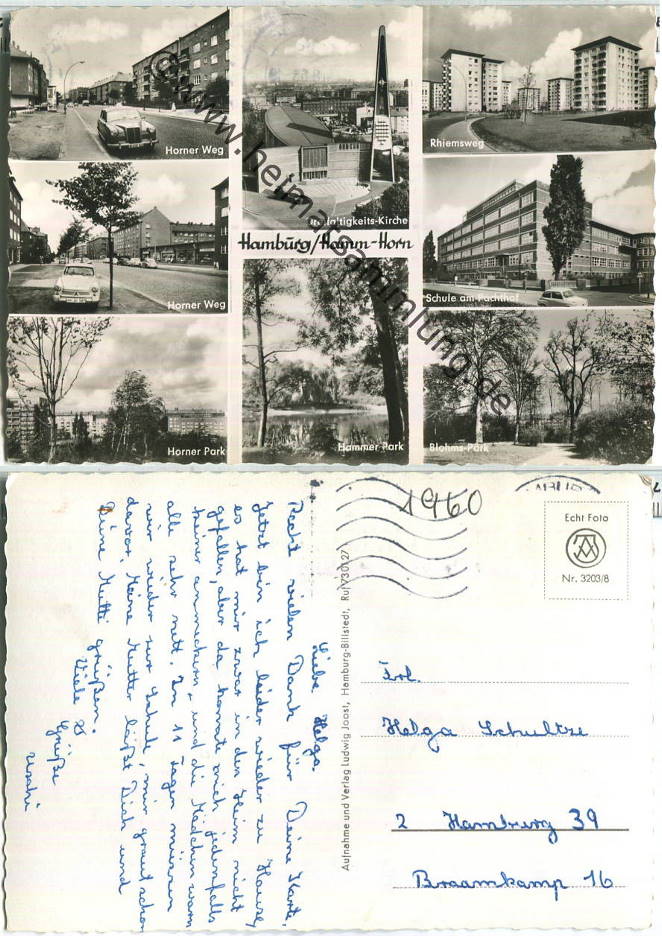 Horner Weg
Dreifaltigkeits-Kirche
Rhiemsweg
Hamburg/Hamm-Horn
Horner Weg
Schule am Pachthof
Horner Park
Hammer Park
Blohms-Park
© www.heimatsammlung.de
1960
Echt Foto
Nr. 3203/8
Aufnahme und Verlag Ludwig Joost, Hamburg-Billstedt, Ruf V 30127
Liebe Helga.
Recht vielen Dank für Deine Karte,
Jetzt bin ich leider wieder zu Hause,
es hat mir zwar in den Heim nicht
gefallen, aber da konnte mich jedenfalls
keiner anmeckern, und die Mädchen warn
alle sehr nett. In 11 Tagen müssen
wir wieder zur Schule, mir graut schon
davor. Meine Mutter läßt Dich und
Deine Mutti grüßen.
Viele
Grüße
Uschi
Frl.
Helga Schultze
2 Hamburg 39
Braamkamp 16